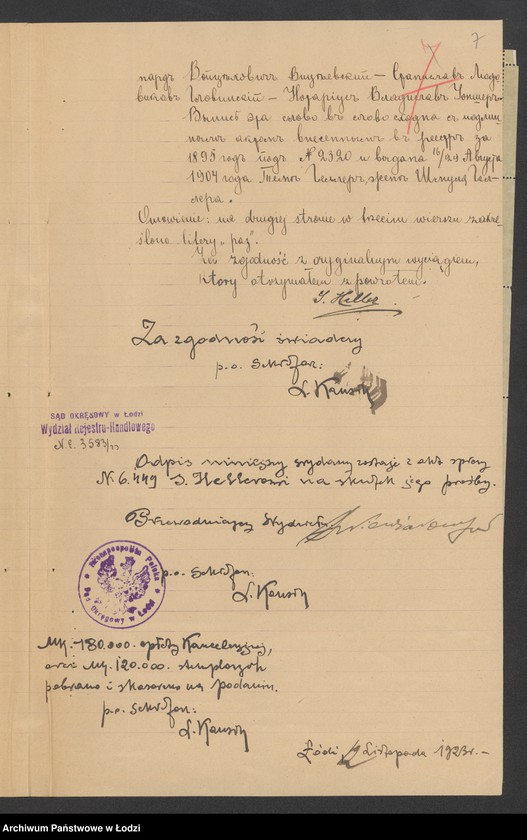 7
нардъ Войцѣховичъ Вицѣевскій — Станиславъ Людо
виковъ Головинскій — Нотаріусъ Владиславъ Іонщеръ.
Выпись эта слово въ слово сходна съ подлин
нымъ актомъ внесеннымъ въ реестръ за
1895 годъ подъ № 2520 и выдана 16/29 Августа
1904 года Геллеръ, женѣ Шмуля Гел-
лера.
Omówienie: na drugiej stronie w trzecim wierszu zakre-
ślono litery „paź".
Za zgodność z oryginalnym wyciągiem,
który otrzymałem z powrotem.
S. Heller
Za zgodność świadczy
p.o. Sekretarz:
SĄD OKRĘGOWY w Łodzi
Wydział Rejestru-Handlowego
N. E. 3583/23
Odpis niniejszy wydany zostaje z akt sprawy
N. 6.449 S. Hellerowi na skutek jego prośby.
Przewodniczący Wydziału
Rzeczpospolita Polska
Sąd Okręgowy w Łodzi
p.o. Sekretarz:
Mk. 180.000. opłaty Kancelaryjnej,
oraz Mk. 120.000. stemplowych
pobrano i skasowano na podaniu.
p.o. Sekretarz:
Łódź, Listopada 1923 r.
Archiwum Państwowe w Łodzi